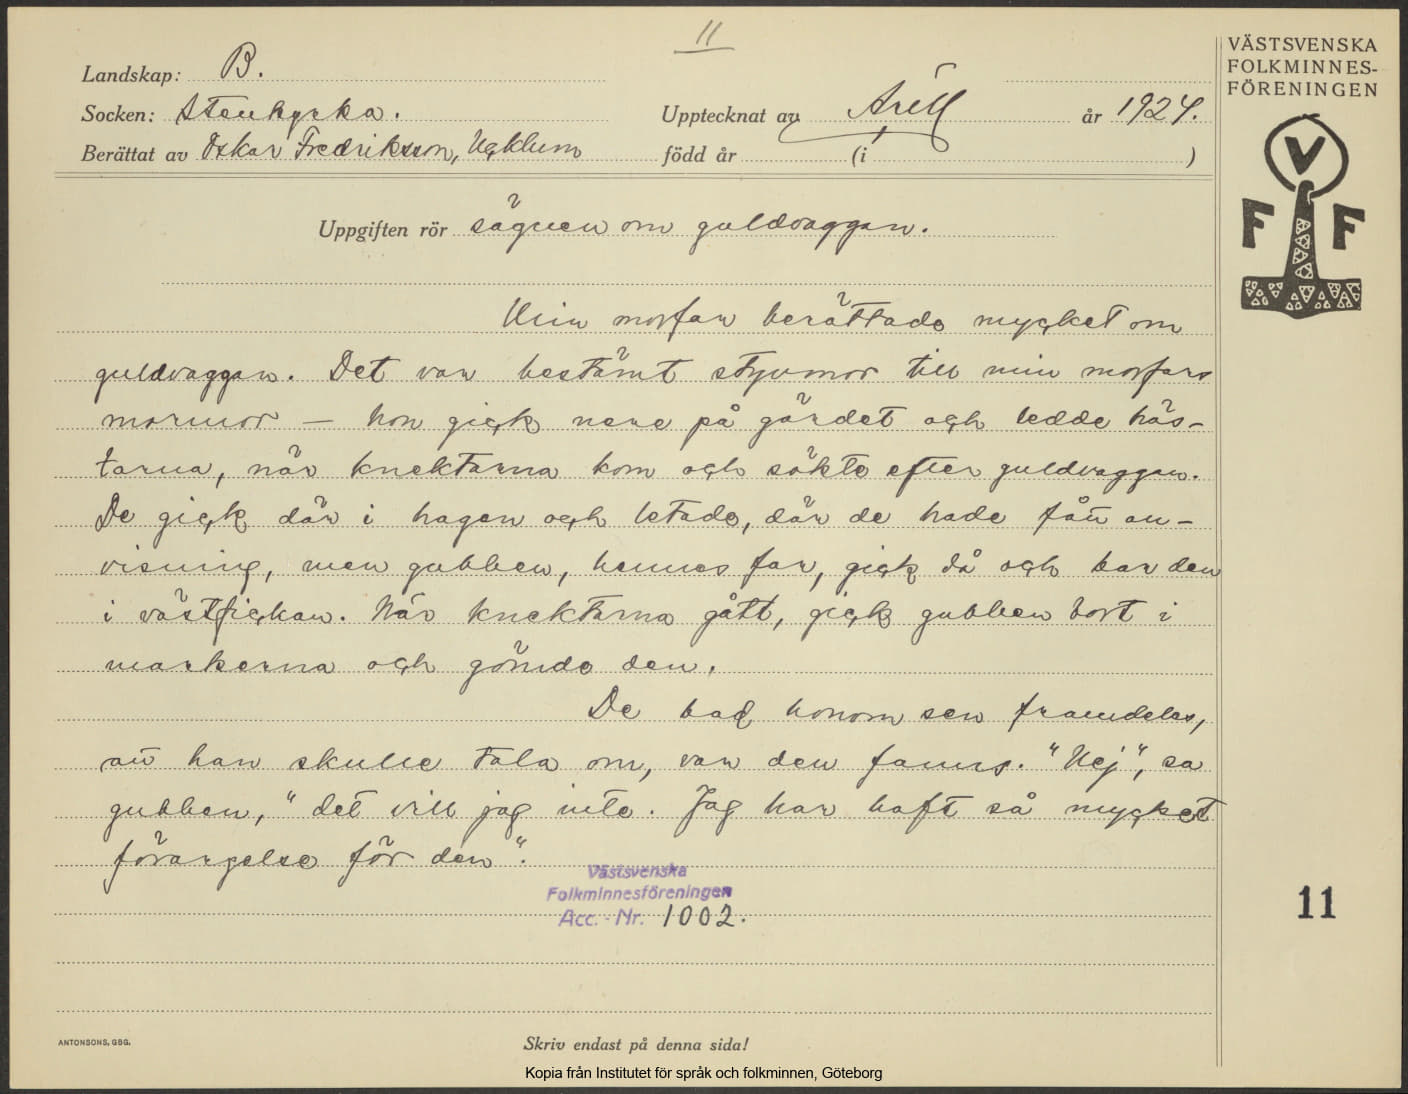 11
VÄSTSVENSKA
FOLKMINNES-
FÖRENINGEN
Landskap: B.
Socken: Stenkyrka.
Upptecknat av Arill år 1924.
Berättat av Oskar Fredriksson, Häcklum född år (i )
V
F F
Uppgiften rör sägnen om guldvaggan.
Min morfar berättade mycket om
guldvaggan. Det var bestämt styvmor till min morfars
mormor — hon gick nere på gärdet och ledde häs-
tarna, när knektarna kom och sökte efter guldvaggan.
De gick där i hagen och letade, där de hade fått an-
visning, men gubben, hennes far, gick då och bar den
i västfickan. När knektarna gått, gick gubben bort i
markerna och gömde den.
De bad honom sen framdeles,
att han skulle tala om, var den fanns. "Nej", sa
gubben, "det vill jag inte. Jag har haft så mycket
förargelse för den".
Västsvenska
Folkminnesföreningen
Acc. - Nr. 1002.
11
ANTONSONS, GBG.
Skriv endast på denna sida!
Kopia från Institutet för språk och folkminnen, Göteborg